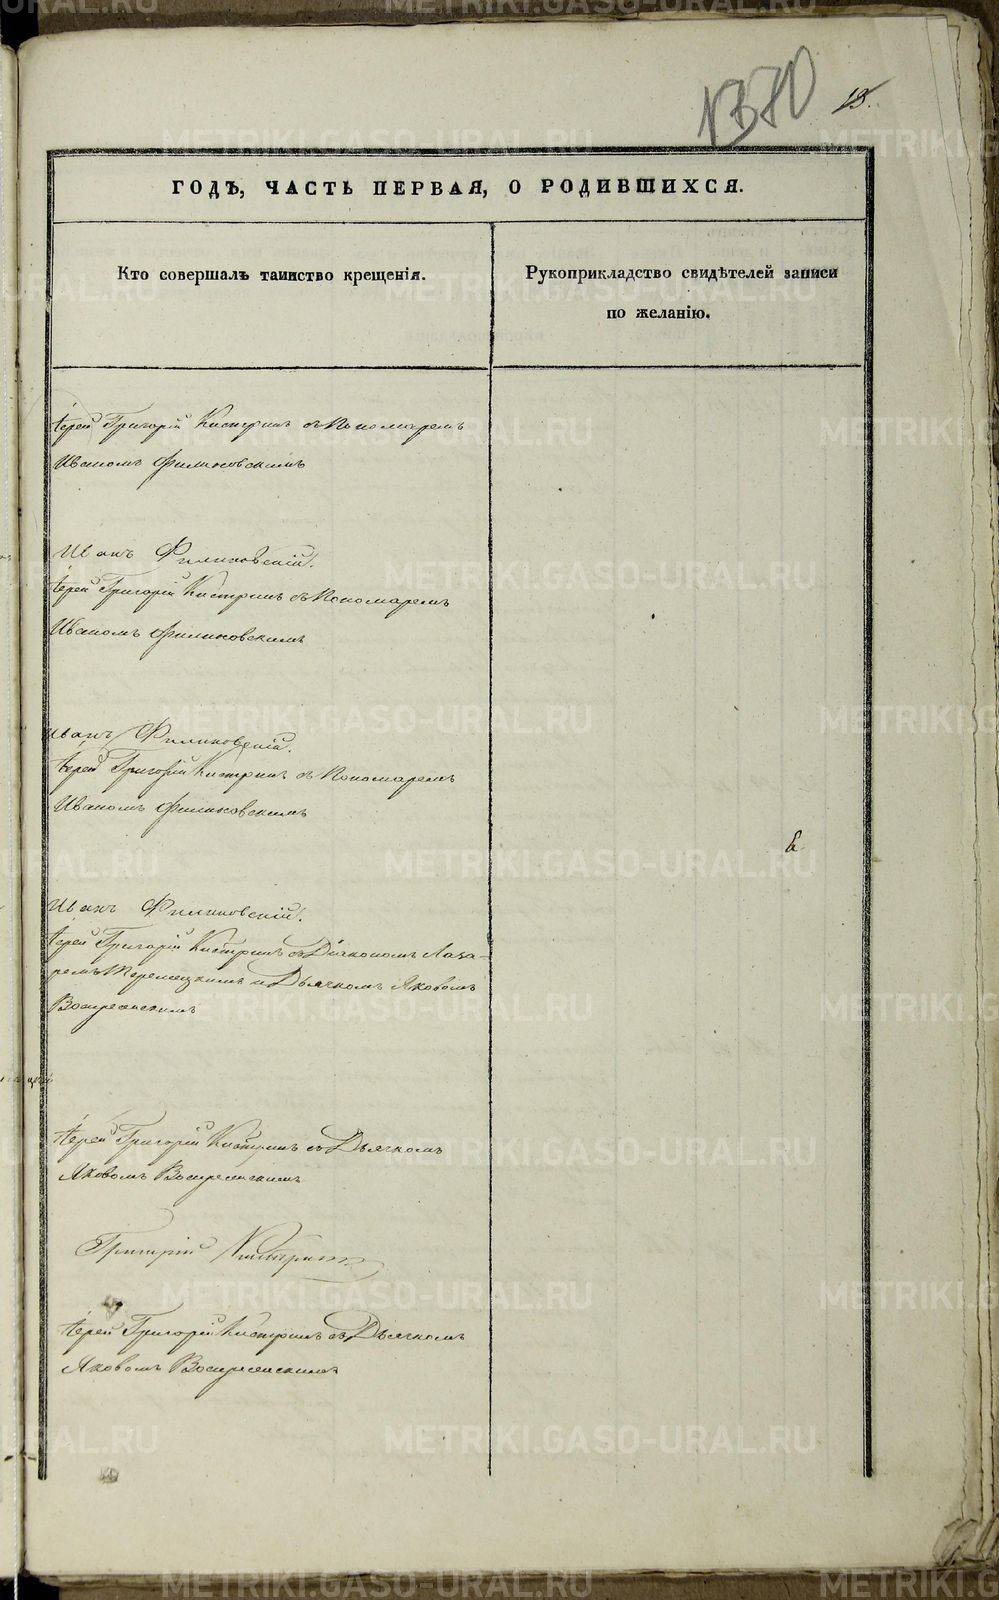 N370
13.
ГОДЪ, ЧАСТЬ ПЕРВАЯ, О РОДИВШИХСЯ.
Кто совершалъ таинство крещенія.
Рукоприкладство свидѣтелей записи
по желанію.
Іерей Григорій Кистринъ съ Пономаремъ
Иваномъ Филиковскимъ
Иванъ Филиковскій.
Іерей Григорій Кистринъ съ Пономаремъ
Иваномъ Филиковскимъ
Иванъ Филиковскій.
Іерей Григорій Кистринъ съ Пономаремъ
Иваномъ Филиковскимъ
Иванъ Филиковскій.
Іерей Григорій Кистринъ съ Діакономъ Лаза-
ремъ и Дьячкомъ Яковомъ
Воскресенскимъ
Іерей Григорій Кистринъ съ Дьячкомъ
Яковомъ Воскресенскимъ
Григорій Кистринъ
Іерей Григорій Кистринъ съ Дьячкомъ
Яковомъ Воскресенскимъ
METRIKI.GASO-URAL.RU